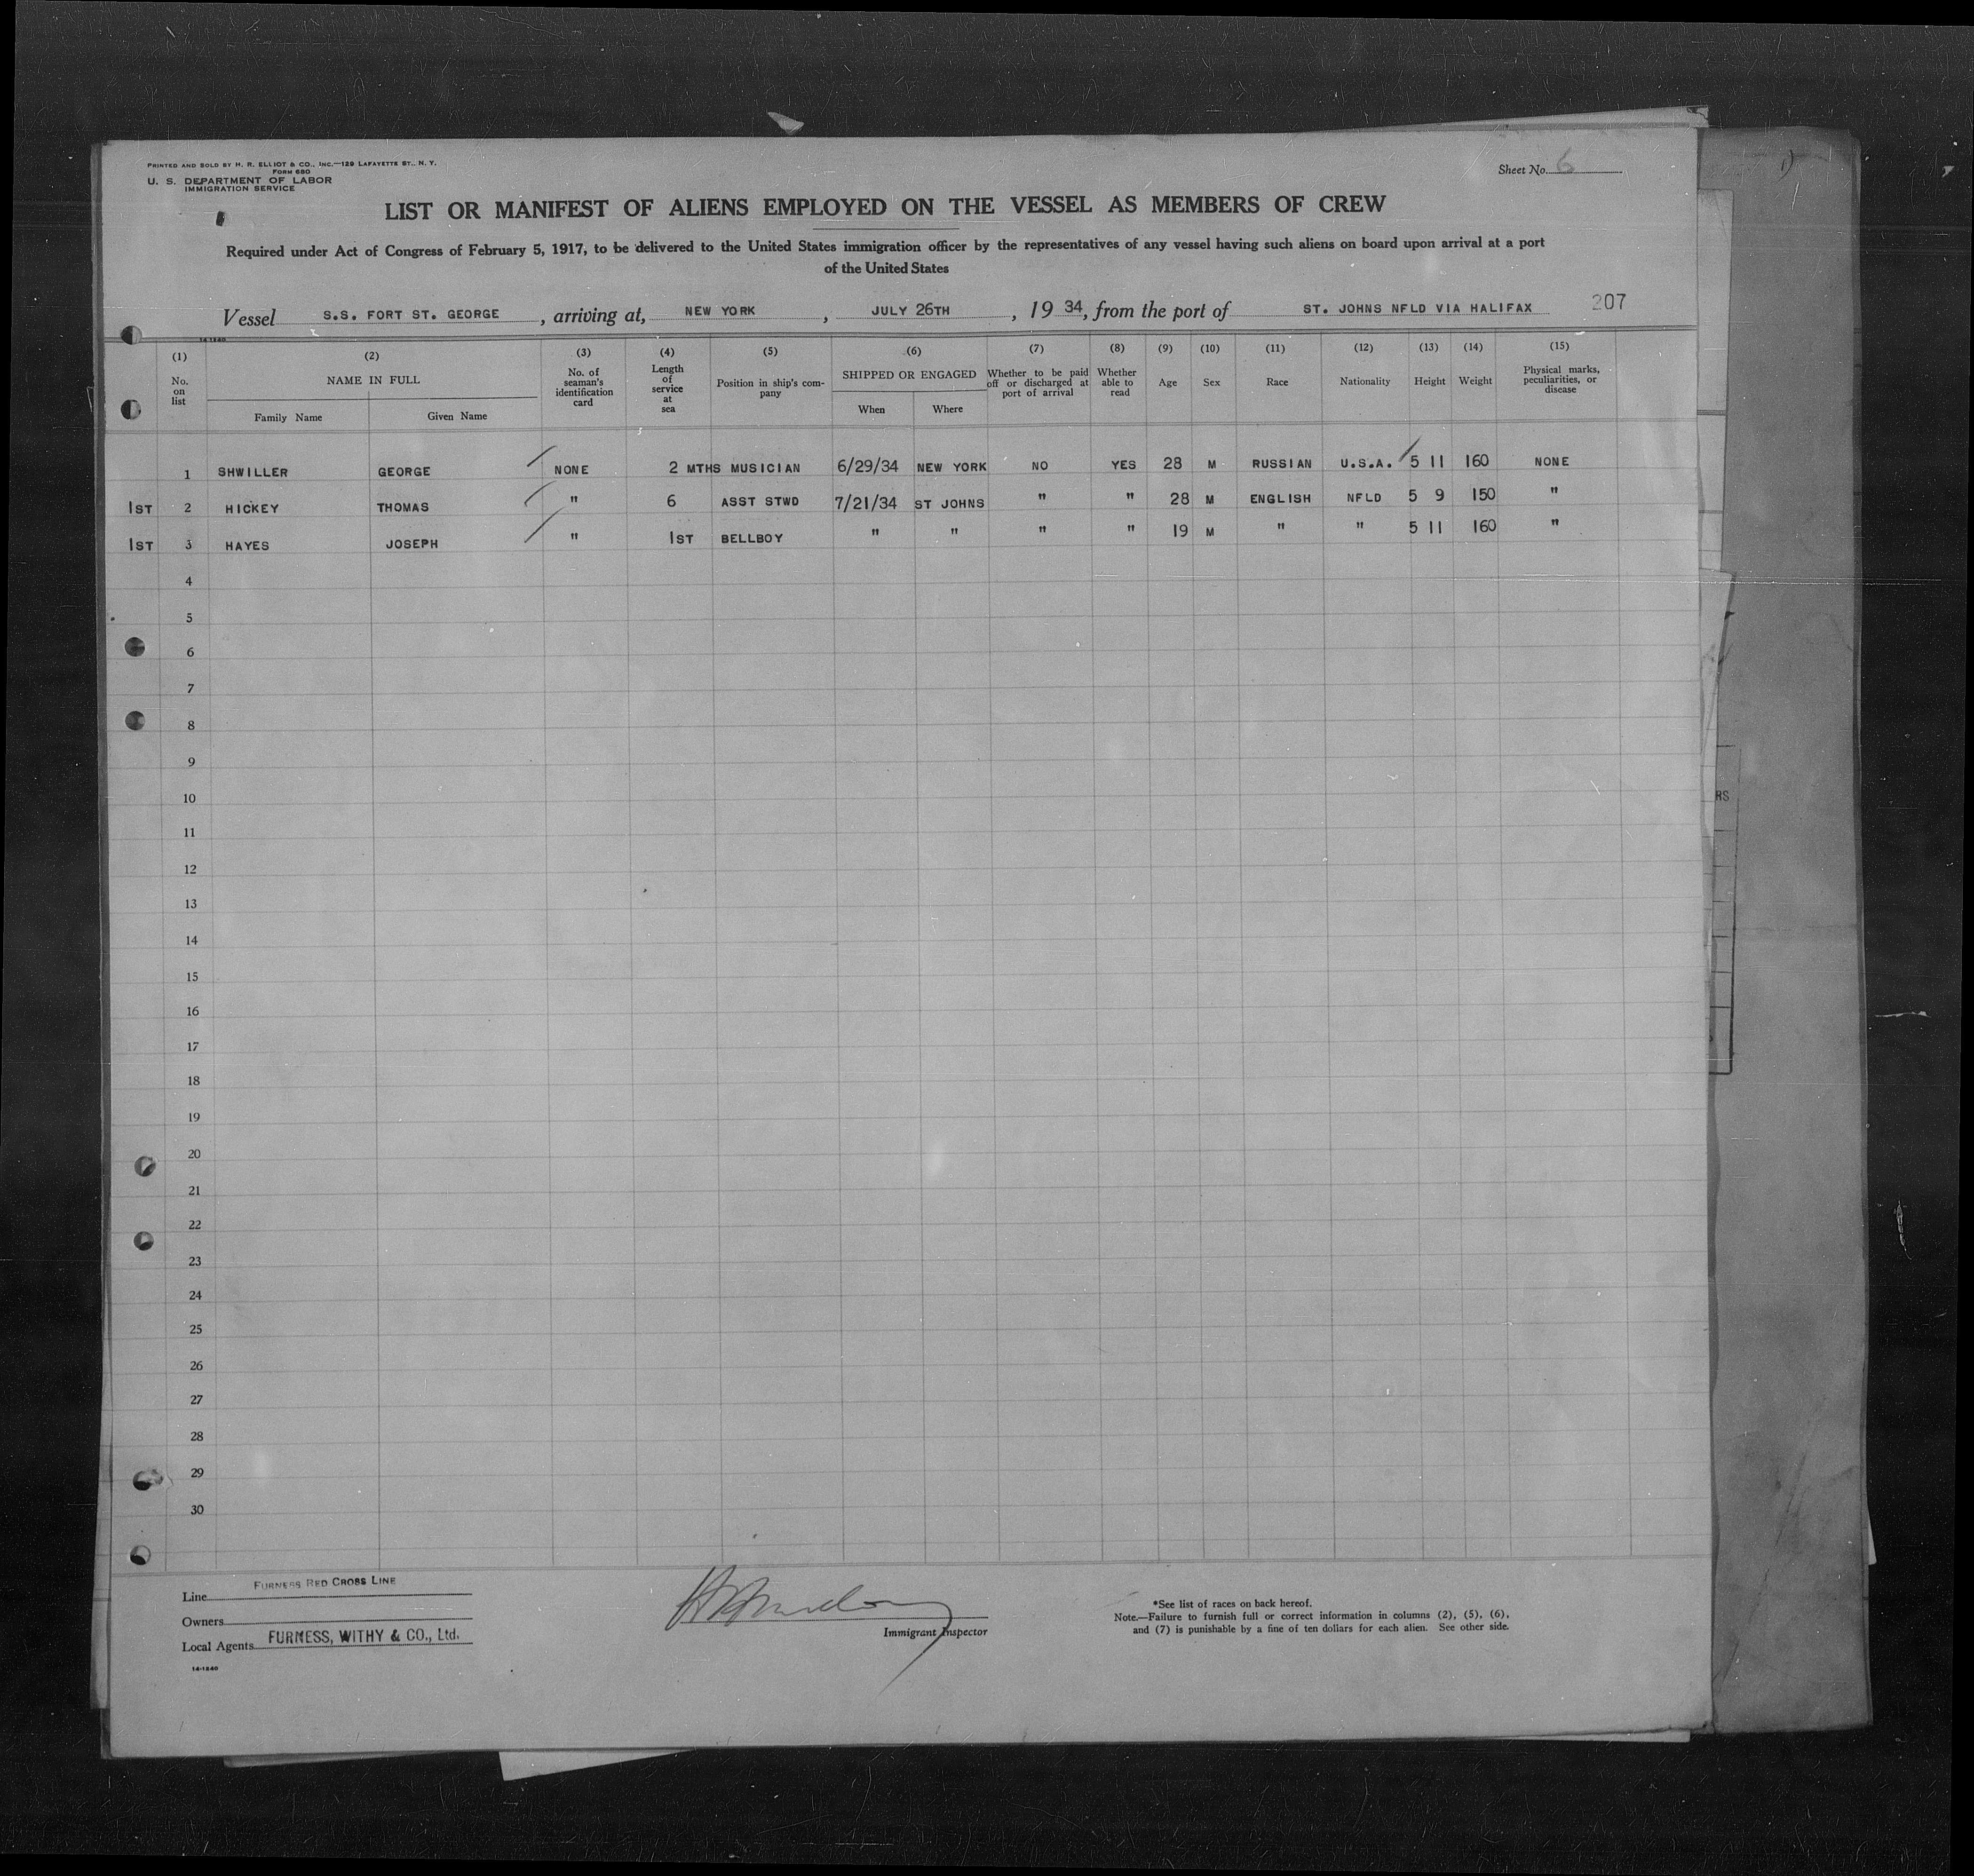 PRINTED AND SOLD BY H. R. ELLIOT & CO., INC.—129 LAFAYETTE ST., N. Y.
FORM 680
U. S. DEPARTMENT OF LABOR
IMMIGRATION SERVICE
Sheet No. 6
LIST OR MANIFEST OF ALIENS EMPLOYED ON THE VESSEL AS MEMBERS OF CREW
Required under Act of Congress of February 5, 1917, to be delivered to the United States immigration officer by the representatives of any vessel having such aliens on board upon arrival at a port
of the United States
Vessel S.S. FORT ST. GEORGE, arriving at, NEW YORK, JULY 26TH, 19 34, from the port of ST. JOHNS NFLD VIA HALIFAX 207
14-1240
(1) (2) (3) (4) (5) (6) (7) (8) (9) (10) (11) (12) (13) (14) (15)
No. on list NAME IN FULL Family Name Given Name No. of seaman's identification card Length of service at sea Position in ship's com- pany SHIPPED OR ENGAGED When Where Whether to be paid off or discharged at port of arrival Whether able to read Age Sex Race Nationality Height Weight Physical marks, peculiarities, or disease
1 SHWILLER GEORGE NONE 2 MTHS MUSICIAN 6/29/34 NEW YORK NO YES 28 M RUSSIAN U.S.A. 5 11 160 NONE
1ST 2 HICKEY THOMAS " 6 ASST STWD 7/21/34 ST JOHNS " " 28 M ENGLISH NFLD 5 9 150 "
1ST 3 HAYES JOSEPH " 1ST BELLBOY " " " " 19 M " " 5 11 160 "
4
5
6
7
8
9
10
11
12
13
14
15
16
17
18
19
20
21
22
23
24
25
26
27
28
29
30
Line FURNESS RED CROSS LINE
Owners
Local Agents FURNESS, WITHY & CO., Ltd.
14-1240
Immigrant Inspector
*See list of races on back hereof.
Note.—Failure to furnish full or correct information in columns (2), (5), (6),
and (7) is punishable by a fine of ten dollars for each alien. See other side.
RS